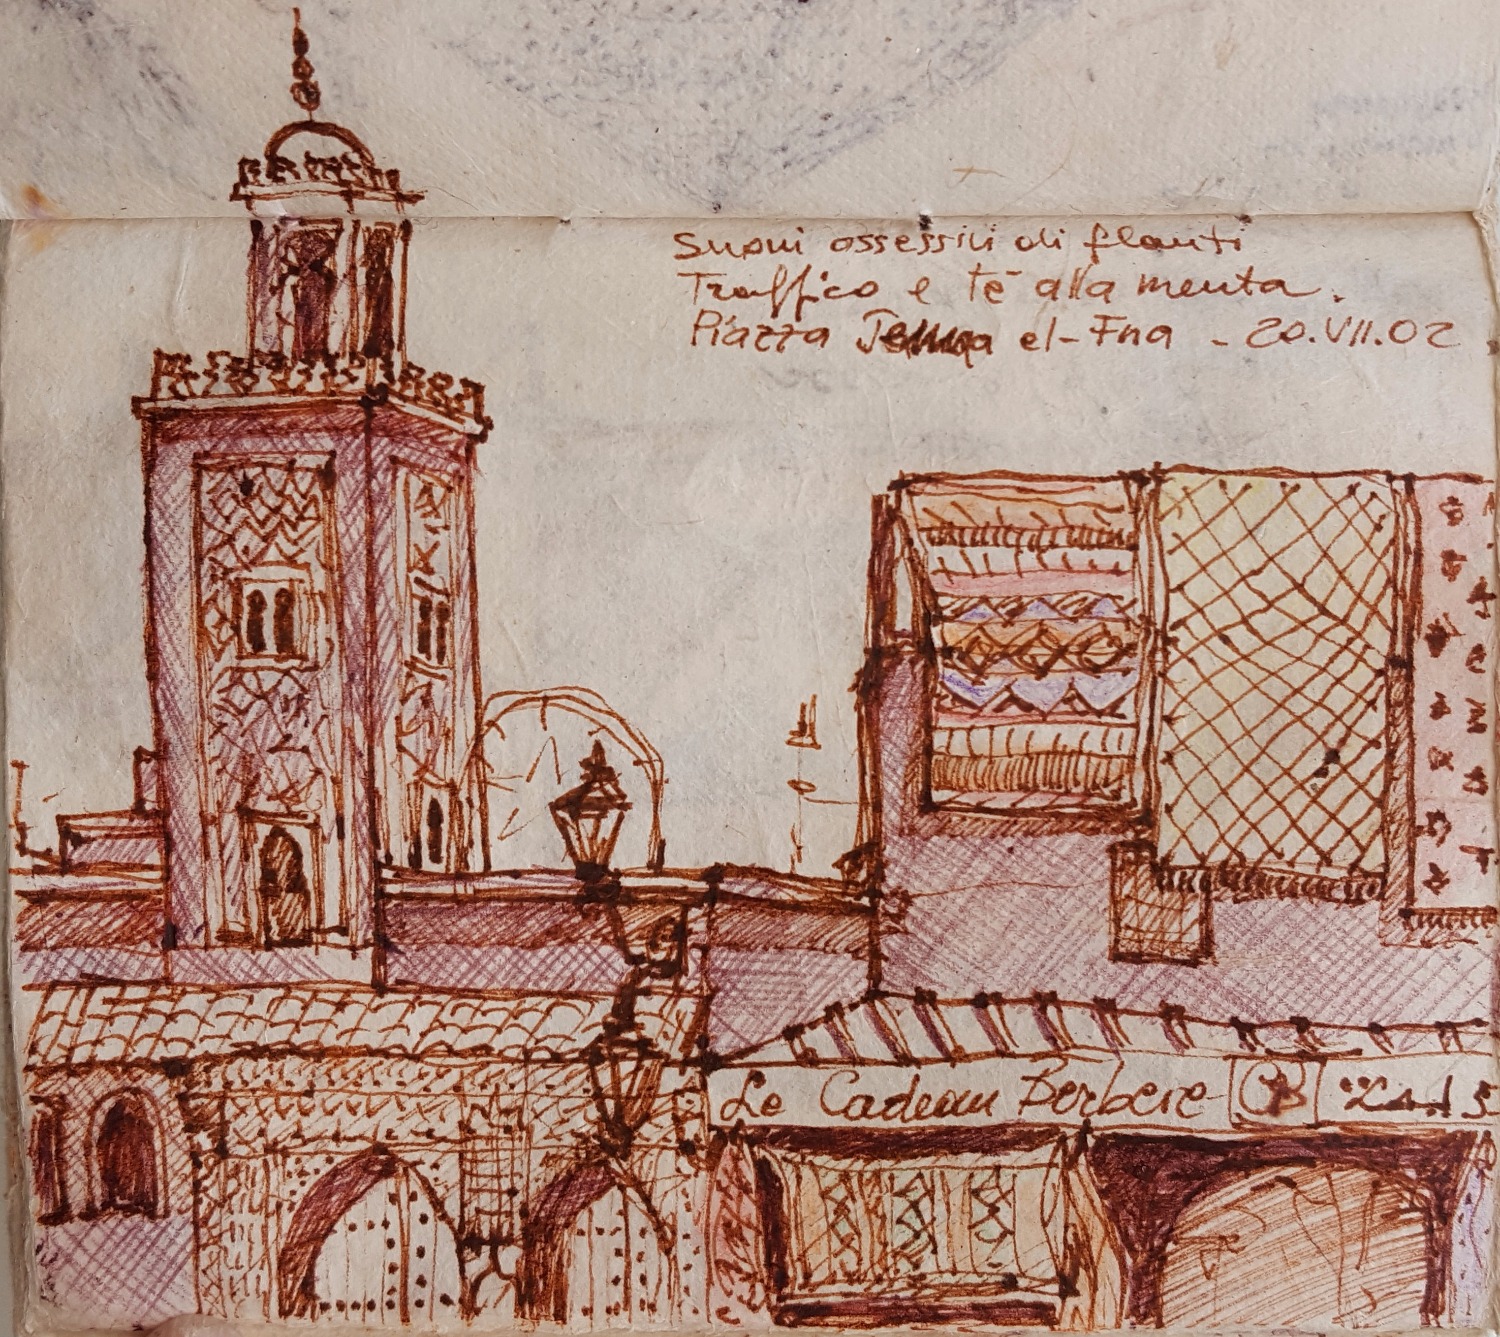 Suoni ossessivi di flauti
Traffico e tè alla menta.
Piazza Jemaa el-Fna - 20.VII.02
Le Cadeau Berbere CB